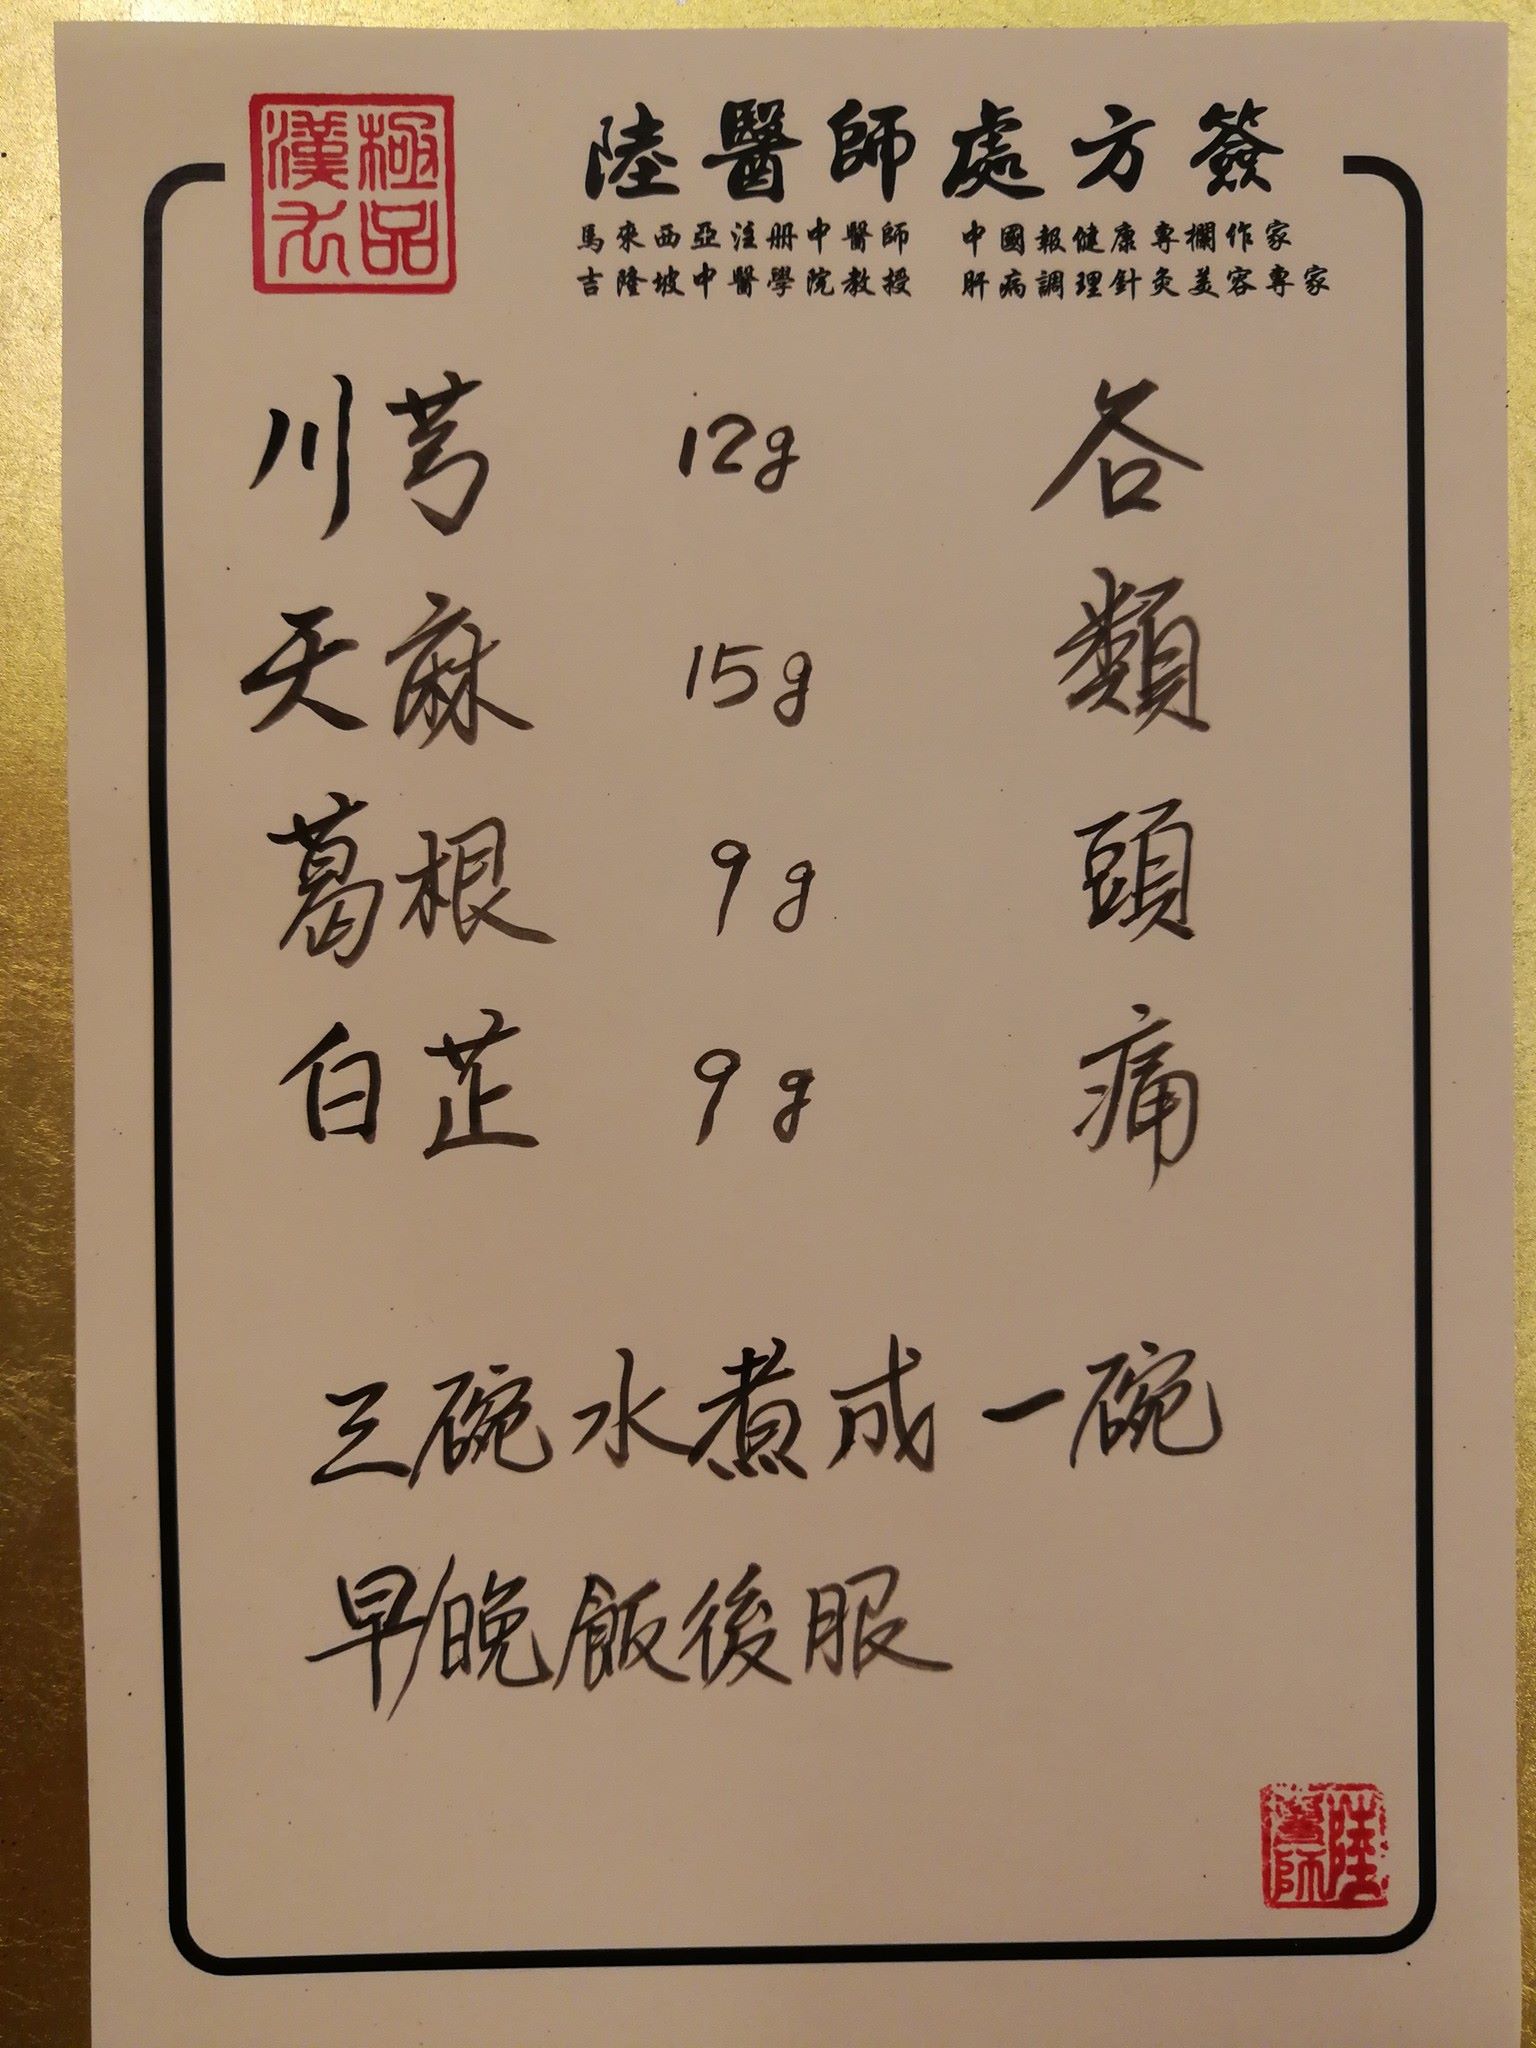 極品
漢方
陸醫師處方簽
馬來西亞注册中醫師 中國報健康專欄作家
吉隆坡中醫學院教授 肝病調理針灸美容專家
川芎 12g
天麻 15g
葛根 9g
白芷 9g
各類頭痛
三碗水煮成一碗
早/晚飯後服
陸醫師